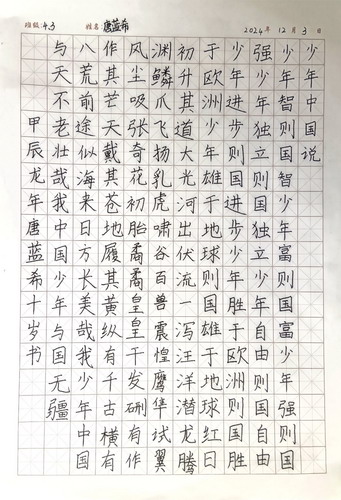 班级:4.3 姓名:唐蓝希 2024年12月3日
少年中国说
少年智则国智少年富则国富少年强则国
强少年独立则国独立少年自由则国自由
少年进步则国进步少年胜于欧洲则国胜
于欧洲少年雄于地球则国雄于地球红日
初升其道大光河出伏流一泻汪洋潜龙腾
渊鳞爪飞扬乳虎啸谷百兽震惶鹰隼试翼
风尘吸张奇花初胎橘橘皇皇干发硎有作
作其芒天戴其苍地履其黄纵有千古横有
八荒前途似海来日方长美哉我少年中国
与天不老壮哉我中国少年与国无疆
甲辰龙年唐蓝希十岁书